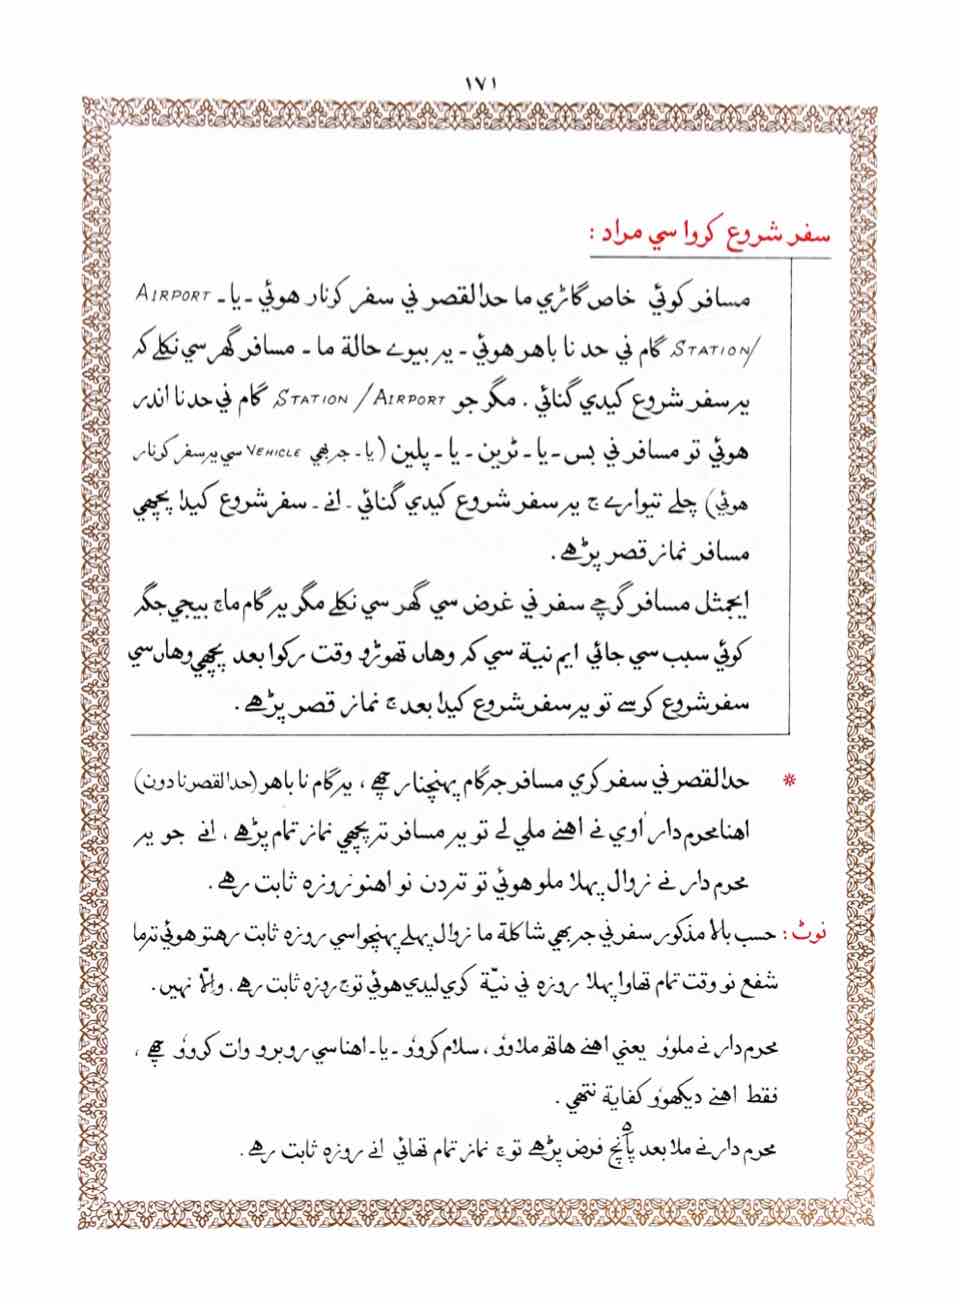 ١٧١
سفر شروع كروا سي مراد :
مسافر كوئي خاص گاڑي ما حد القصر ني سفر كرنار هوئي ـ يا ـ AIRPORT
/STATION گام ني حد نا باهر هوئي ـ يه بيوے حالة ما ـ مسافر گهر سي نكلے كه
يه سفر شروع كيدي گنائي . مگر جو STATION / AIRPORT گام ني حد نا اندر
هوئي تو مسافر ني بس ـ يا ـ ٹرين ـ يا ـ پلين (يا ـ جه بهي VEHICLE سي يه سفر كرنار
هوئي) چلے تيوارے ج يه سفر شروع كيدي گنائي ـ انے ـ سفر شروع كيدا پچهي
مسافر نماز قصر پڑهے .
ايجمثل مسافر گرچے سفر ني غرض سي گهر سي نكلے مگر يه گام ماج بيجي جگه
كوئي سبب سي جائي ايم نية سي كه وهاں تهوڑو وقت ركوا بعد پچهي وهاں سي
سفر شروع كرسے تو يه سفر شروع كيدا بعد ج نماز قصر پڑهے .
* حد القصر ني سفر كري مسافر جه گام پهنچنار چهے ، يه گام نا باهر (حد القصر نا دون)
اهنا محرم دار اوي نے اهنے ملي لے تو يه مسافر ته پچهي نماز تمام پڑهے ، انے جو يه
محرم دار نے زوال پهلا ملو هوئي تو ته دن نو اهنو روزه ثابت رهے .
نوٹ : حسب بالا مذكور سفر ني جه بهي شاكلة ما زوال پهلے پهنچوا سي روزه ثابت رهتو هوئي ته ما
شفع نو وقت تمام تهاوا پهلا روزه ني نيّة كري ليدي هوئي توج روزه ثابت رهے . والّا نهيں .
محرم دار نے ملوو يعني اهنے هاتھ ملاوو ، سلام كروو ـ يا ـ اهنا سي روبرو وات كروو چهے ،
فقط اهنے ديكهوو كفاية نتهي .
محرم دار نے ملا بعد پانچ فرض پڑهے توج نماز تمام تهائي انے روزه ثابت رهے .